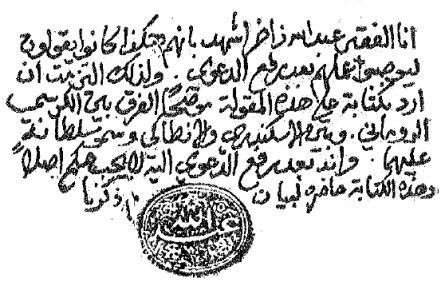 انا الفقير عبدالله زاخر اشهد بانهم هكذا كانوا يقولون
ليوجبوا عليهم بعد رفع الدعوي . ولذلك التزمت ان
ارد بكتابة علي هذه المقولة موضحاً الفرق بين الكرسي
الروماني . وبين الاسكندري والانطاكي وسمي سلطانه
عليهما . وانه بعد رفع الدعوي اليه لا يجب عليكم اصلاً
وهذه الكتابة حاضره لبيان ما ذكرنا